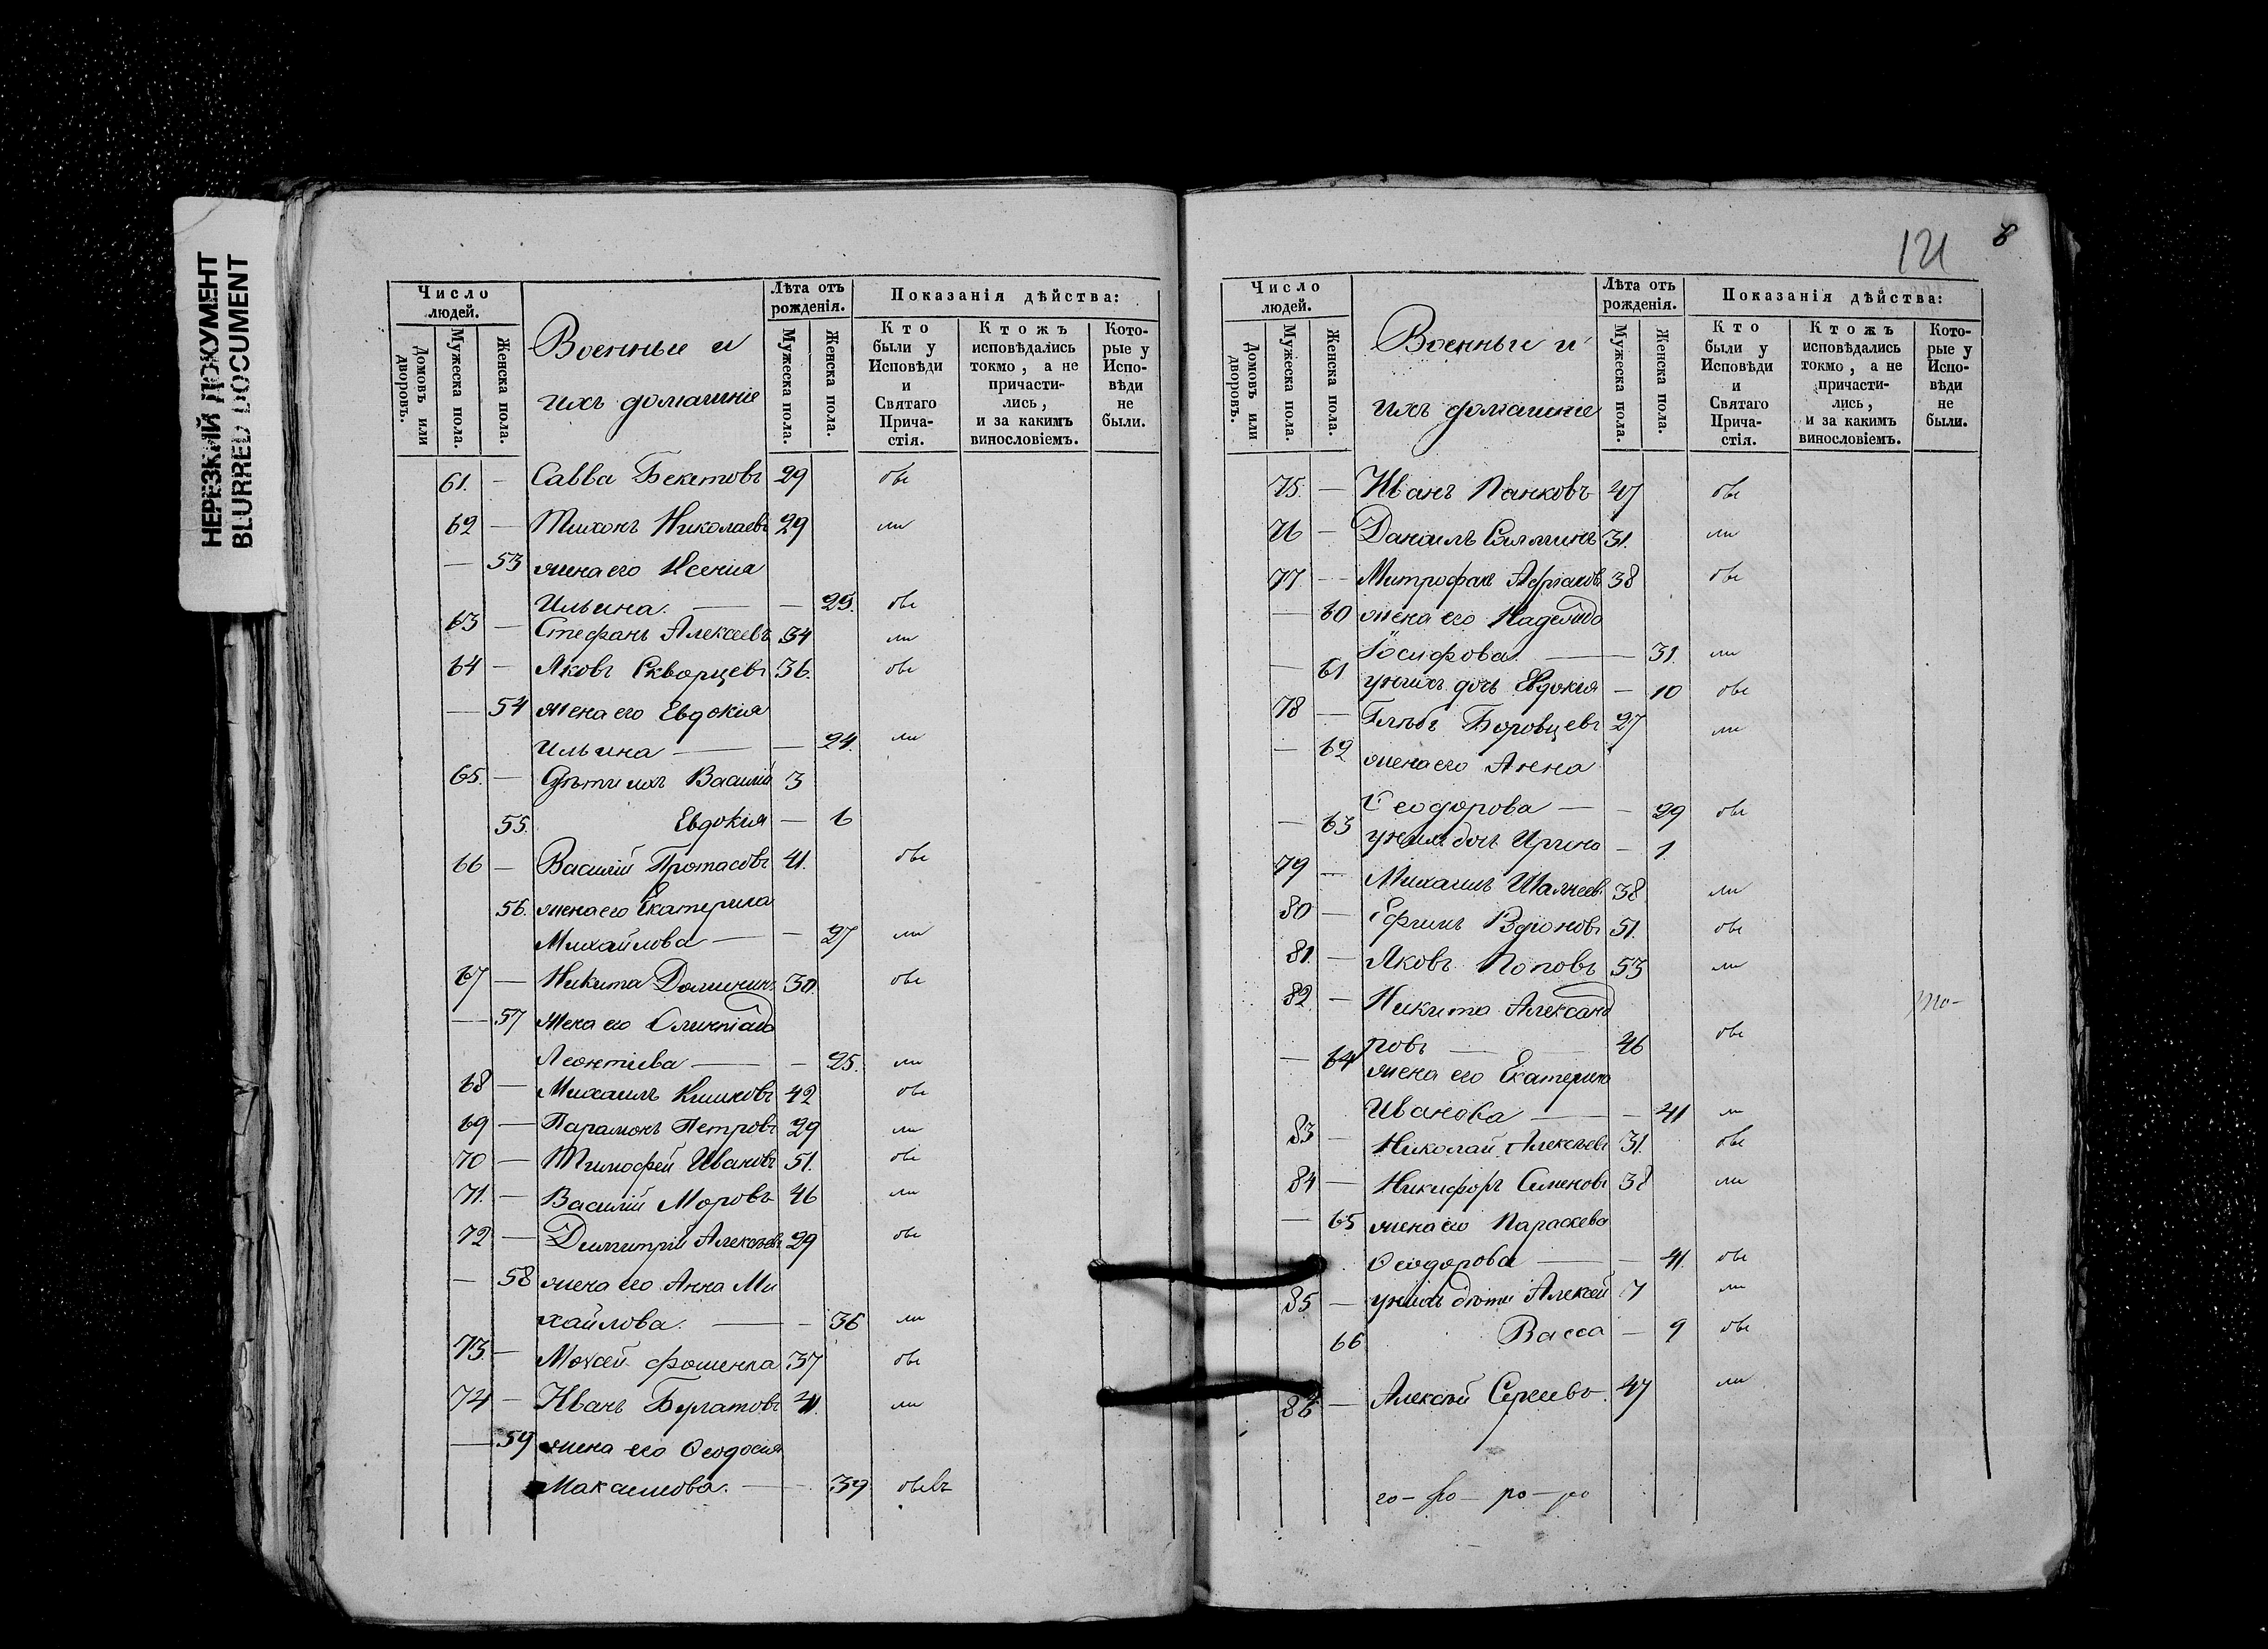 НЕРЕЗКИЙ ДОКУМЕНТ
BLURRED DOCUMENT
Число людей.
Домовъ или дворовъ.
Мужеска пола.
Женска пола.
Военные и
ихъ домашніе
Лѣта отъ рожденія.
Мужеска пола.
Женска пола.
Показанія дѣйства:
Кто были у Исповѣди и Святаго Прича-стія.
Ктожъ исповѣдались токмо, а не причасти-лись, и за какимъ винословіемъ.
Кото-рые у Испо-вѣди не были.
61. — Савва Бекетовъ 29 обе
62 — Тихонъ Николаевъ 29 ли
— 53 жена его Ксенія
Ильина. — — 25. обе
63 — Стефанъ Алексеевъ 34 ли
64 — Яковъ Скворцевъ 36. обе
— 54 жена его Евдокія
Ильина — — 24. ли
65. — Дѣти ихъ Василій 3
55. Евдокія — 6
66 — Василій Протасовъ 41. обе
56. жена его Екатерина
Михайлова — — 27 ли
67 — Никита 30. обе
— 57 жена его
Леонтіева — — 25. ли
68 — Михаилъ 42 обе
69 — Парамонъ Петровъ 29 ли
70 — Тимофей Ивановъ 51. обе
71. — Василій Моровъ 46 ли
72 — Димитрій Алексѣевъ 29 обе
— 58 жена его Анна Ми
хайлова. — — 36 ли
73. — Моѵсей фоменка 37 обе
74 — Иванъ Булатовъ 41. ли
— 59 жена его Ѳеодосия
Максимова. — 39 обевъ
121
8
Число людей.
Домовъ или дворовъ.
Мужеска пола.
Женска пола.
Военные и
ихъ домашніе
Лѣта отъ рожденія.
Мужеска пола.
Женска пола.
Показанія дѣйства:
Кто были у Исповѣди и Святаго Прича-стія.
Ктожъ исповѣдались токмо, а не причасти-лись, и за какимъ винословіемъ.
Кото-рые у Испо-вѣди не были.
75. — Иванъ Панковъ 47 обе
76 — Данаилъ 31. ли
77 — Митрофанъ 38 обе
— 60 жена его Надежда
Іосифова. — — 31. ли
— 61 у нихъ дочь Евдокія — 10 обе
78 — Глѣбъ Боровцевъ 27 ли
— 62 жена его Анна
Ѳеодорова — — 29 обе
— 63 у нихъ доч Ирина — 1.
79 — Михаилъ 38 ли
80 — Ефимъ 51. обе
81. — Яковъ Поповъ 53 ли
82. — Никита Александ
ровъ — 46 обе
— 64 жена его Екатерина
Иванова — — 41 ли
83 — Николай Алексѣевъ 31. обе
84 — Никифоръ Семеновъ 38 ли
— 65 жена его Параскева
Ѳеодорова — — 41. обе
85 — у нихъ дѣти Алексѣй 7 ли
66 Васса — 9 обе
86 — Алексѣй Сергеевъ. 47 ли
го — ро — ро — ро